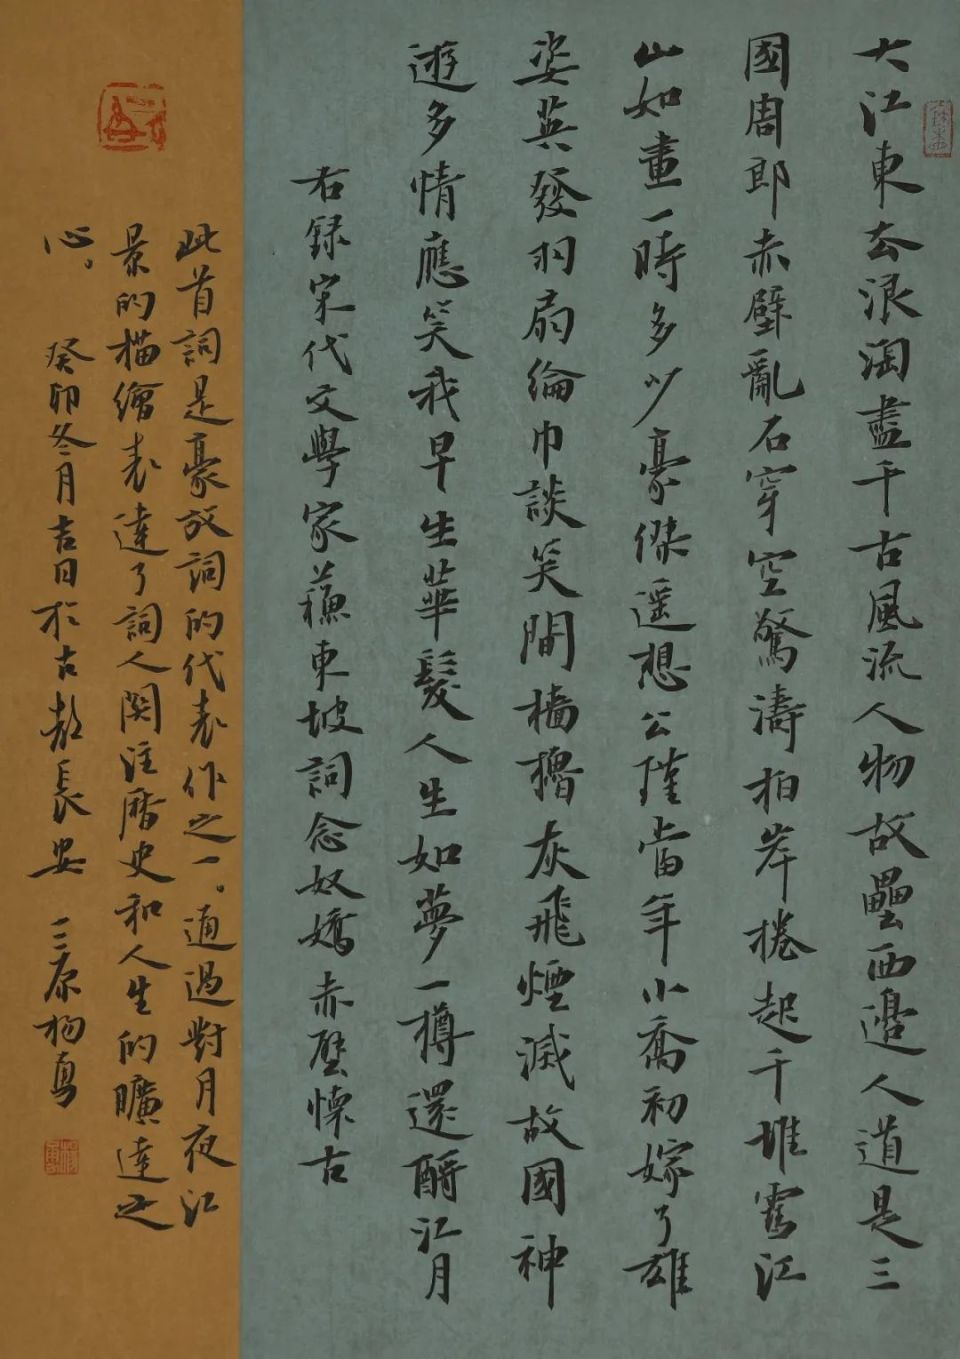 大江東去浪淘盡千古風流人物故壘西邊人道是三
國周郎赤壁亂石穿空驚濤拍岸捲起千堆雪江
山如畫一時多少豪傑遥想公瑾當年小喬初嫁了雄
姿英發羽扇綸巾談笑間檣櫓灰飛煙滅故國神
遊多情應笑我早生華髮人生如夢一樽還酹江月
右録宋代文學家蘇東坡詞念奴嬌赤壁懷古
此首詞是豪放詞的代表作之一。通過對月夜江
景的描繪表達了詞人関注曆史和人生的曠達之
心。癸卯冬月吉日於古都長安 三原楊勇